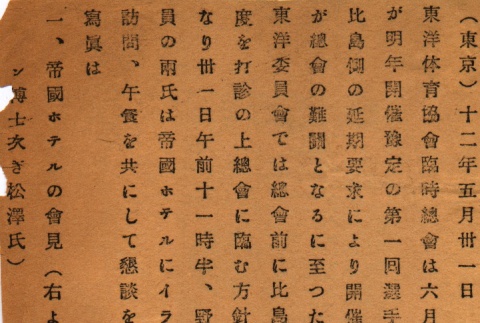 （東京）十二年五月卅一日
東洋体育協會臨時總會は六月
が明年開催豫定の第一回選手
比島側の延期要求により開催
が總會の難關となるに至つた
東洋委員會では總會前に比島
度を打診の上總會に臨む方針
なり卅一日午前十一時半、野
員の兩氏は帝國ホテルにイラ
訪問、午餐を共にして懇談を
寫眞は
一、帝國ホテルの會見（右よ
ン博士次ぎ松澤氏）